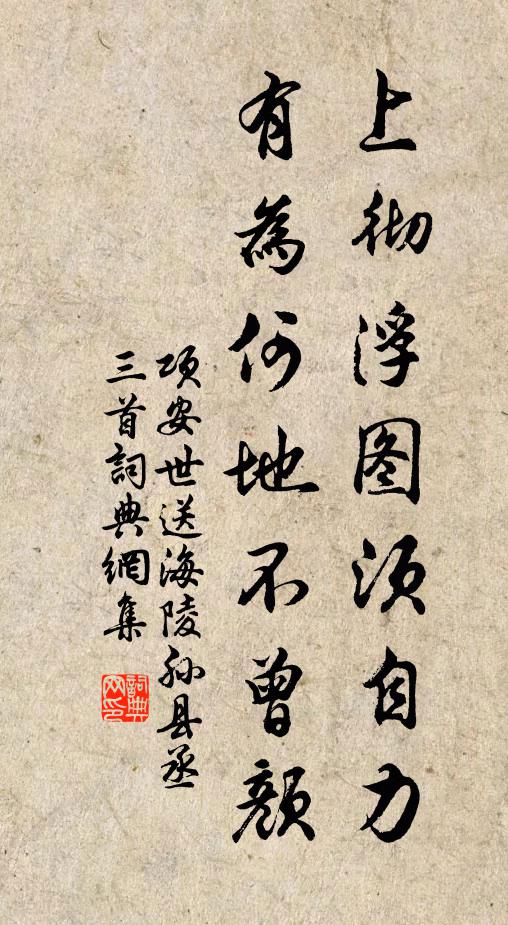 上彻浮图须自力
有為何地不曾颜
项安世送海陵孙县丞
三首詞典網集
詞典网印